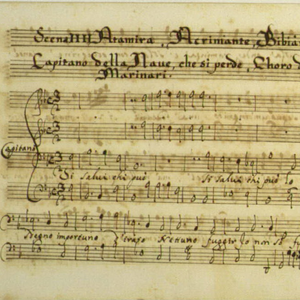 Scena IIII Atamira, Acrimante, Bibi
Capitano della Naue, che si perde, Choro d
Marinari.
Capitano
Si salui chi può Si salui chi può lo
sdegno importuno Nettuno fuggir Io non sò